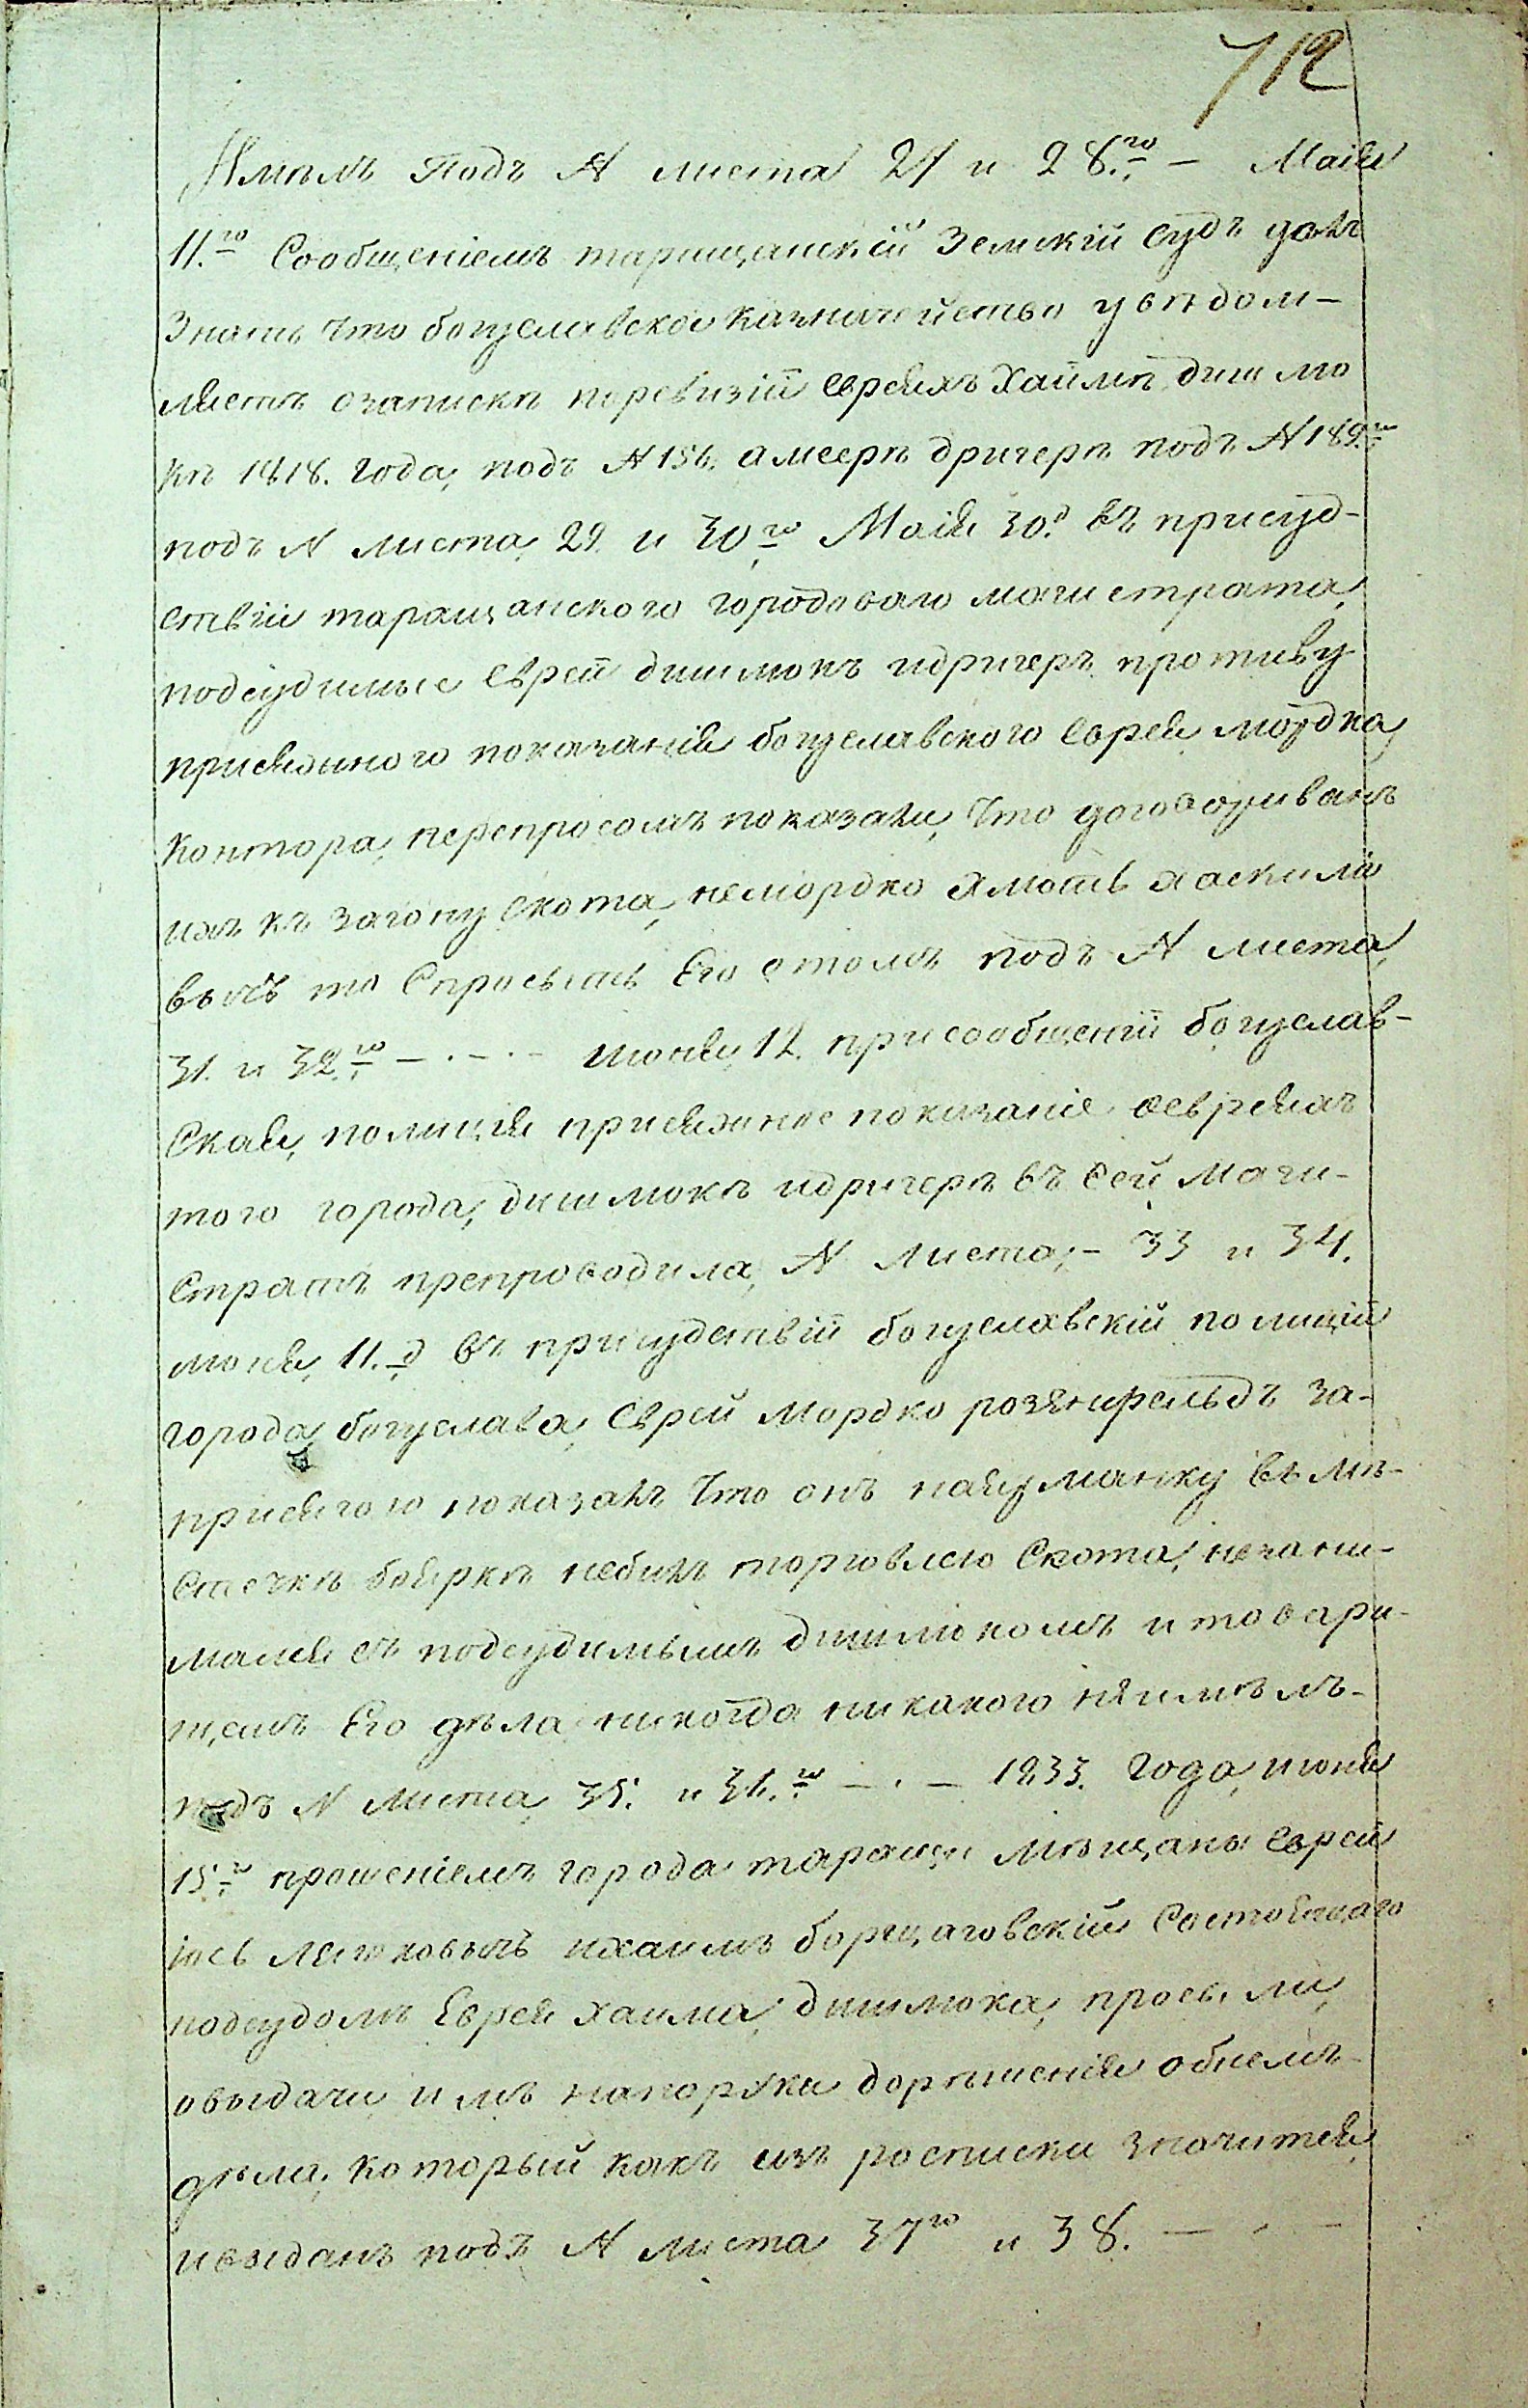 712
Имъмъ Подъ № листа 27 и 28.го — Маія
11.го Сообщеніемъ таращанскій Земскій Судъ далъ
Знать Что богуславское Казначейство увѣдом-
ляетъ озапискѣ поревизіи Евреяхъ Хаймѣ дишлю
кѣ 1818. года, подъ № 156. амеерѣ дричерѣ подъ № 189.го
подъ № листа, 29. и 30го Маія 30.д въ присуд-
ствіи таращанского городоваго магистрата,
подсудимые Евреи дишлюкъ идричеръ противу
присяжного показанія богуславского Еврея мордка
Контора, перепросомъ показали, Что договоривалъ
ихъ къ загону скота, немордко Амотъ хаскилё
вычъ то Спросить Его отомъ подъ № листа,
31. и 32.го — . — . — июня, 12. присообщеніи богуслав-
Ская, полиція присяжное показаніе оевреяхъ
того города, дишлюкѣ идричерѣ въ Сей Маги-
Стратъ препроводила, № листа, — 33 и 34.
июня, 11.д въ присудствіи богуславскій полиціи
города, богуслава, Еврей Мордко розенфельдъ за-
присягою показалъ Что онъ наярманку въ мѣ-
Стечкѣ бояркѣ небилъ торговлею Скота, незани-
мался съ подсудимымъ дишлюкомъ и товари-
щемъ Его дѣла никогда никакого неимѣлъ-
подъ № листа, 35. и 36.го — . — 1833. года, июня
15.го прошеніемъ города таращи мѣщаны Евреи
іось ляшковычъ ихаимъ борщаговскій Состоящаго
подсудомъ Еврея Хаима, дишлюка, просили,
овыдачи имъ напоруки дорѣшенія обнемъ-
дѣла, который какъ изъ росписки значится
ивыданъ подъ № листа 37го и 38. — . —